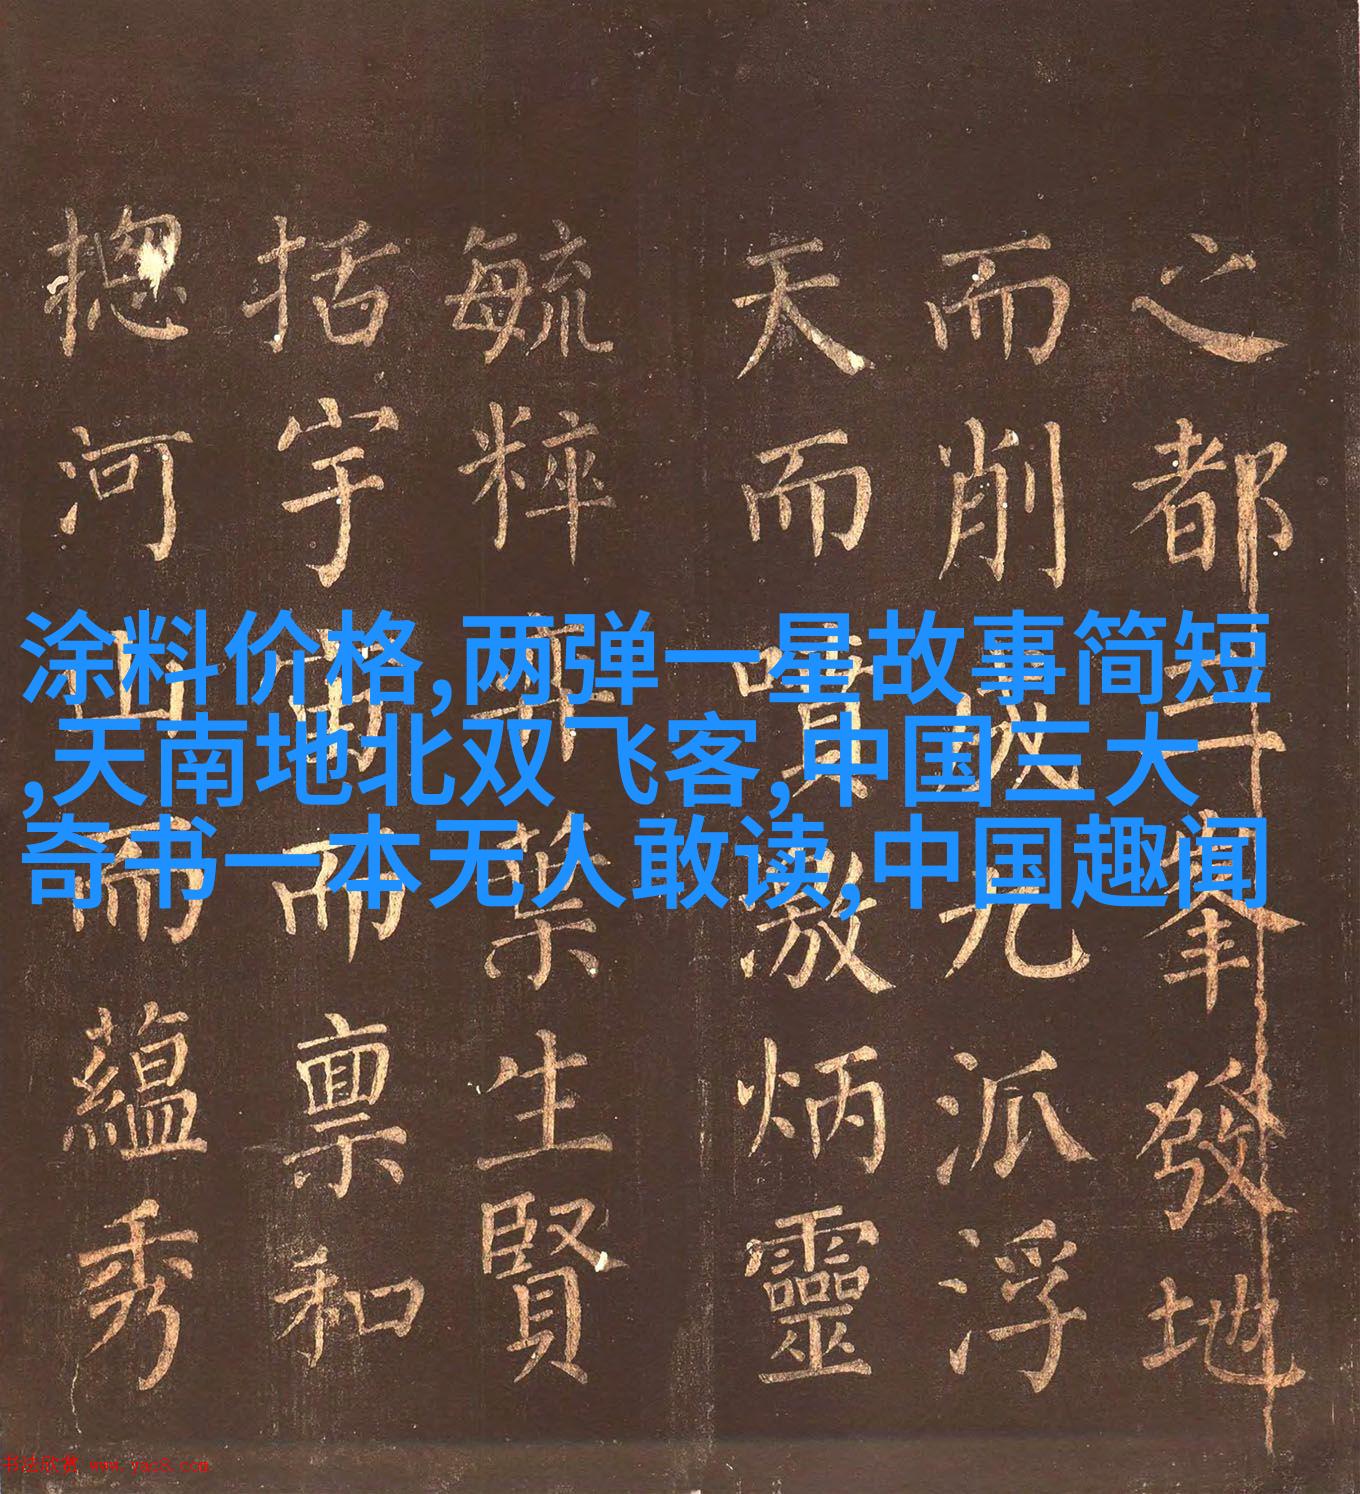 涂料价格,两弹一星故事简短
,天南地北双飞客,中国三大
奇书一本无人敢读,中国趣闻
之都三峯發地
而削成九派浮
天而噴激炳靈
毓粹弈葉生賢
括宇宙而禀和
揔河山而蘊秀
书法欣赏 www.yac8.com